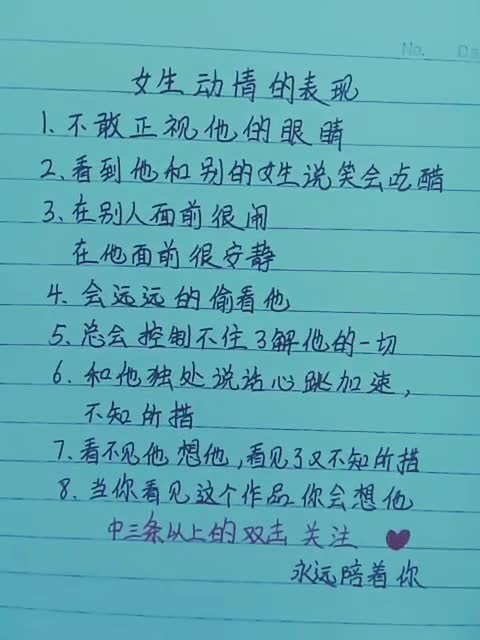 No. Da
女生动情的表现
1、不敢正视他的眼睛
2、看到他和别的女生说笑会吃醋
3、在别人面前很闹
在他面前很安静
4、会远远的偷看他
5、总会控制不住了解他的一切
6、和他独处说话心跳加速，
不知所措
7、看不见他想他，看见了又不知所措
8、当你看见这个作品你会想他
中三条以上的双击关注
永远陪着你